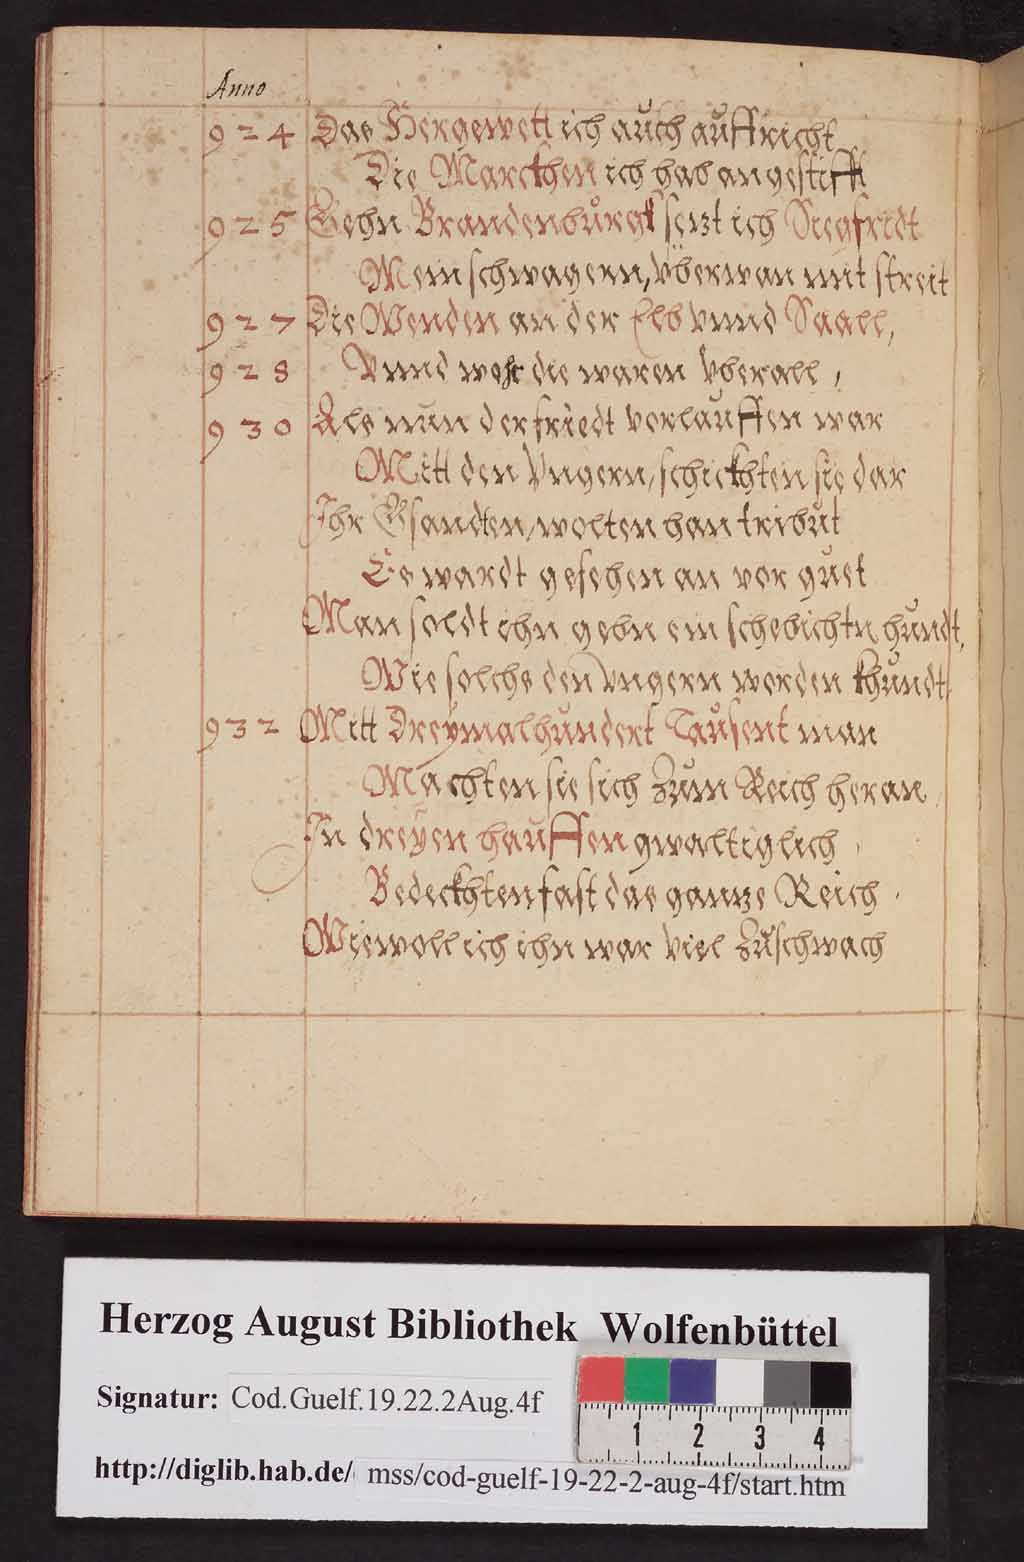 Anno
924 Das Hergewett ich auch auffricht
Die Marckhen ich hab angestifft
925 Gehn Brandenburgk setzt ich Siegfridt
Mein schwagern, Vberwan mit streit
927 Die Wenden an der Elb Vnnd Saall,
928 Vnnd wehr die waren Vberall,
930 Als nun der friedt vorlauffen war
Mitt den Vngern, schickhten sie dar
Ihr Gsandten, wolten han tribut
Es wardt gesehen an vor guet
Man soldt ihn gebn ein schebichtn hundt,
Wie solchs den Vngern worden khundt,
932 Mitt Dreÿmalhundert Tausent man
Machten sie sich Zum Reich heran,
In dreÿen hauffen gwaltiglich,
Bedeckhten fast das gantze Reich.
Wiewoll ich ihn war Viel Zuschwach
Herzog August Bibliothek Wolfenbüttel
Signatur: Cod.Guelf.19.22.2Aug.4f
1 2 3 4
http://diglib.hab.de/ mss/cod-guelf-19-22-2-aug-4f/start.htm